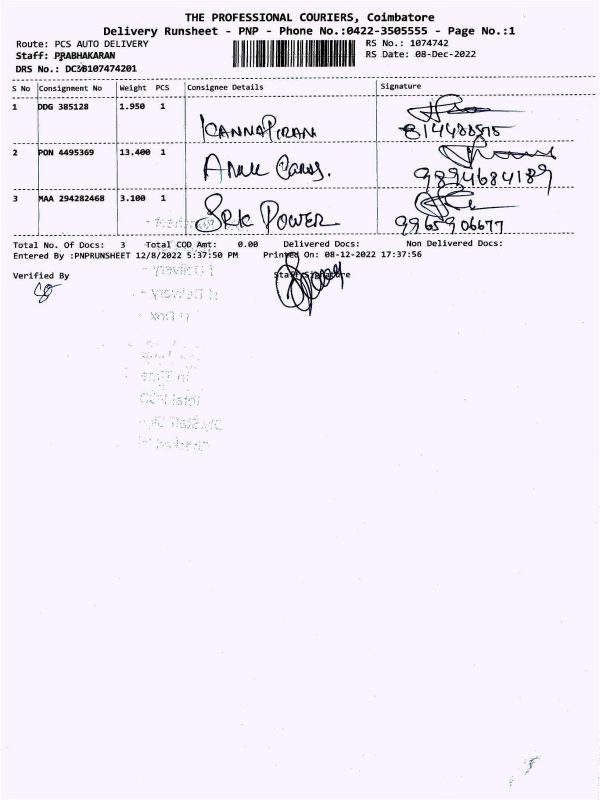 THE PROFESSIONAL COURIERS, Coimbatore
Delivery Runsheet - PNP - Phone No.:0422-3505555 - Page No.:1
Route: PCS AUTO DELIVERY
RS No.: 1074742
Staff: PRABHAKARAN
RS Date: 08-Dec-2022
DRS No.: DC3B107474201
S No Consignment No Weight PCS Consignee Details Signature
1 DDG 385128 1.950 1
KANNAPIRAN
2 PON 4495369 13.400 1
9894684189
3 MAA 294282468 3.100 1
SRK POWER 9965906677
Total No. Of Docs: 3 Total COD Amt: 0.00 Delivered Docs: Non Delivered Docs:
Entered By :PNPRUNSHEET 12/8/2022 5:37:50 PM Printed On: 08-12-2022 17:37:56
Verified By Staff Signature